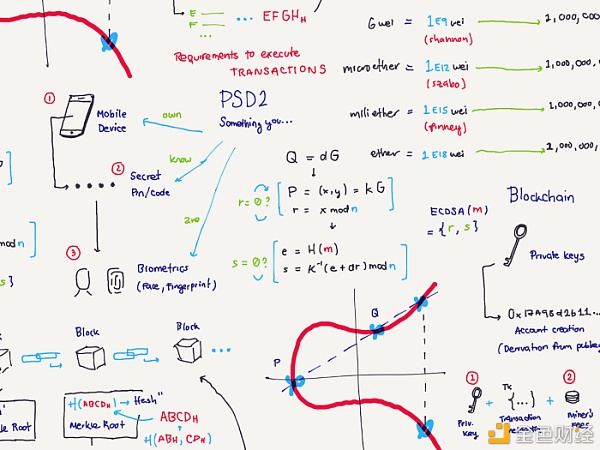 E
F
... EFGHH
Requirements to execute
TRANSACTIONS
Gwei = 1E9 wei → 1,000,000
(shannon)
microether = 1E12 wei → 1,000,000,
(szabo)
milliether = 1E15 wei → 1,000,000,
(finney)
ether = 1E18 wei → 1,000,000,
PSD2
Something you...
own
know
are
①
Mobile
Device
②
Secret
Pin/code
③
Biometrics
(Face, Fingerprint)
Q = dG
r=0?
P = (x,y) = kG
r = x mod n
s=0?
e = H(m)
s = K⁻¹(e+dr) mod n
mod n
s}
ECDSA(m)
= {r, s}
Blockchain
Private keys
0x17A98d2b11...
Account creation
(Derivation from pubkey
Block
Block
...
H(ABCDH) → Hash"
Merkle Root
Root
ABCDH
H(ABH, CDH)
P
Q
①
Priv.
key
+
Tx
{...}
Transaction
+
②
Miner's
Fees
金色财经